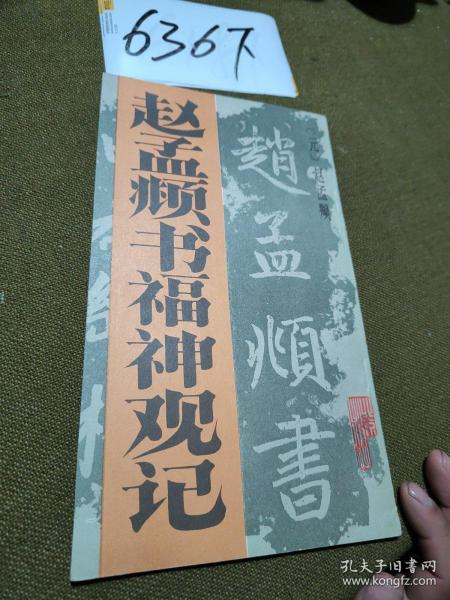 6367下
赵孟頫书福神观记
〔元〕赵孟頫
趙孟頫書
孔夫子旧书网
www.kongfz.com